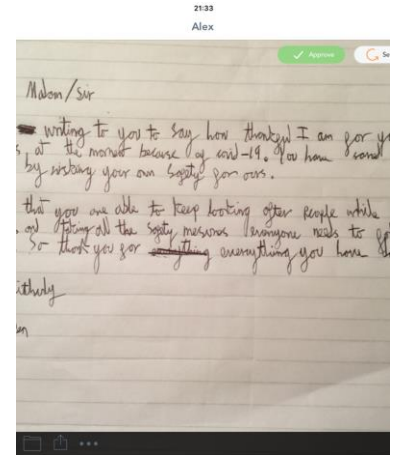 21:33
Alex
Approve
Se
Madam/Sir
writing to you to say how thankful I am for yo
s at the moment because of covid-19. You have saved
by risking your own safety for ours.
that you are able to keep looking after people while
and taking all the safety mesures everyone needs to
So thank you for everything you have
ithfully
en